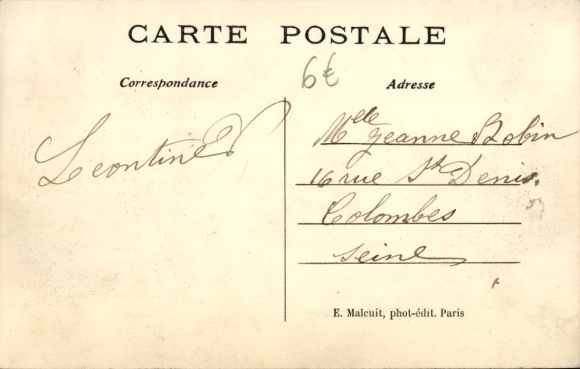 CARTE POSTALE
Correspondance
6€
Adresse
Leontine
Melle Jeanne Robin
16 rue St Denis.
Colombes
Seine
E. Malcuit, phot-édit. Paris